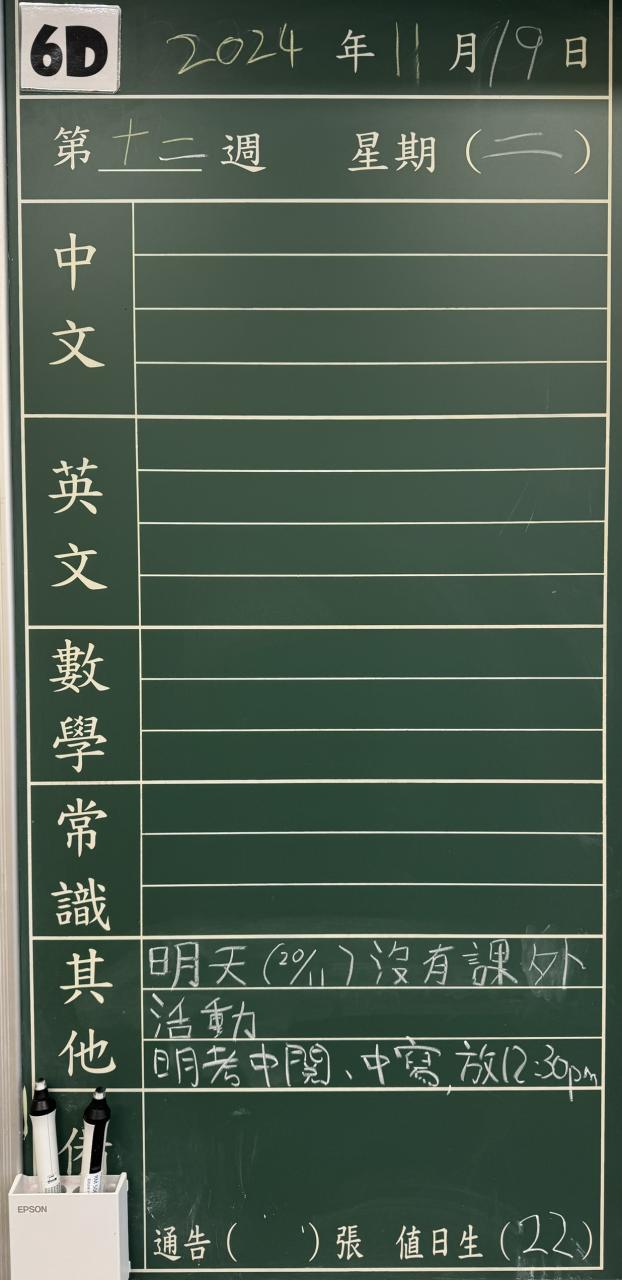 6D 2024 年 11 月 19 日
第 十二 週 星期 (二)
中文
英文
數學
常識
其他
明天 (20/11) 沒有課外
活動
明考中閱、中寫, 放12:30pm
備
EPSON
通告 ( ) 張 值日生 (22)